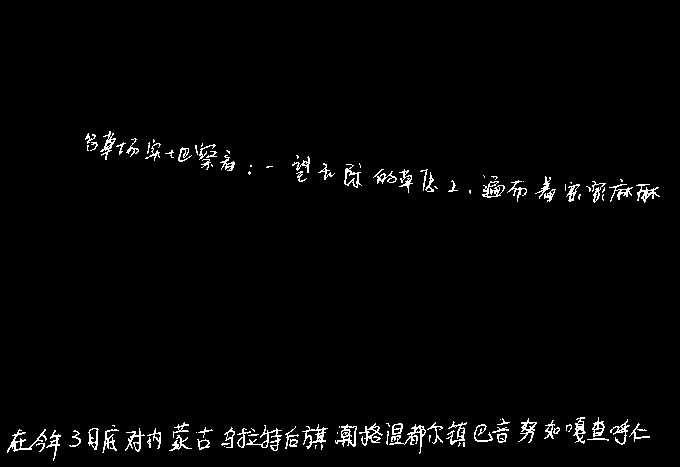 台草场实地察看：一望无际的草原上，遍布着密密麻麻
在今年3月底对内蒙古乌拉特后旗潮格温都尔镇巴音努如嘎查呼仁